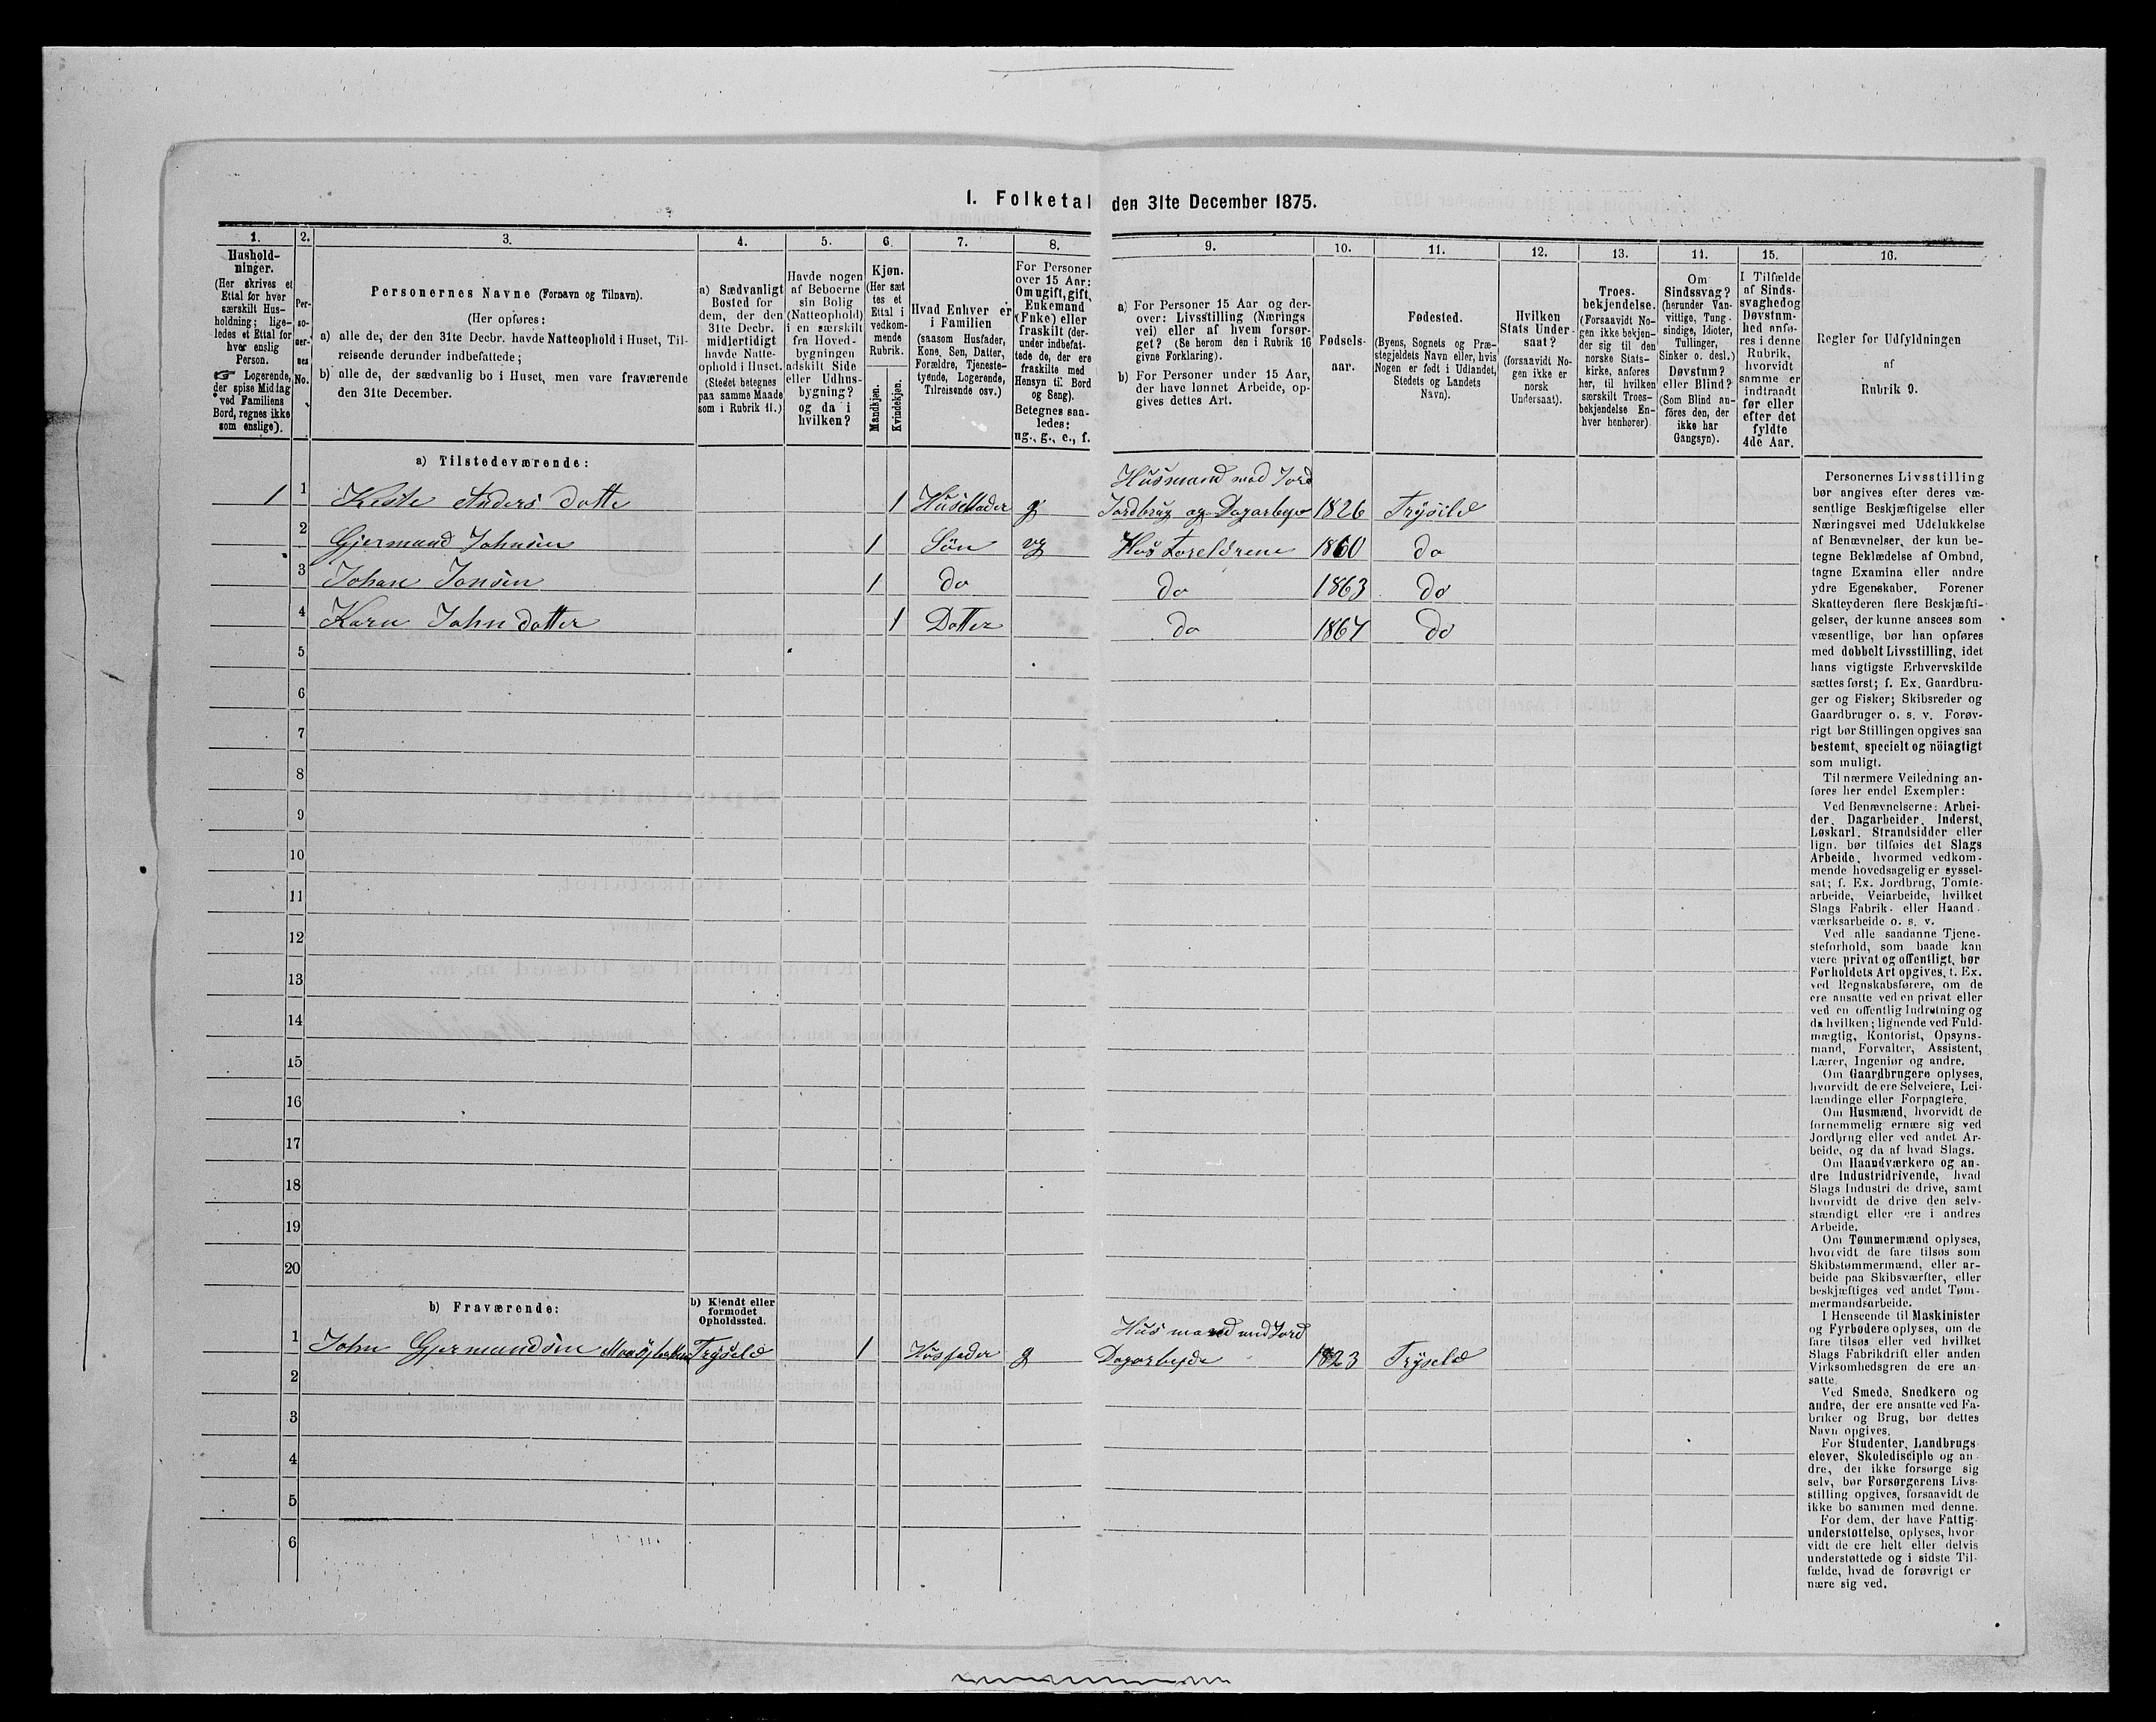 I. Folketal den 31te December 1875.
1.
2.
3.
4.
5.
6.
7.
8.
9.
10.
11.
12.
13.
14.
15.
16.
Hushold-
ninger.
(Her skrives et
Ettal for hver
særskilt Hus-
holdning; lige-
ledes et Ettal for
hver enslig
Person.
☞ Logerende,
der spise Middag
ved Familiens
Bord, regnes ikke
som enslige).
Per-
so-
ner-
nes
No.
Personernes Navne (Fornavn og Tilnavn).
(Her opføres:
a) alle de, der den 31te Decbr. havde Natteophold i Huset, Til-
reisende derunder indbefattede;
b) alle de, der sædvanlig bo i Huset, men vare fraværende
den 31te December.
a) Sædvanligt
Bosted for
dem, der den
31te Decbr.
midlertidigt
havde Natte-
ophold i Huset.
(Stedet betegnes
paa samme Maade
som i Rubrik 11.)
Havde nogen
af Beboerne
sin Bolig
(Natteophold)
i en særskilt
fra Hoved-
bygningen
adskilt Side
eller Udhus-
bygning?
og da i
hvilken?
Kjøn.
(Her sæt
tes et
Ettal i
vedkom-
mende
Rubrik.
Mandkjøn.
Kvindekjøn.
Hvad Enhver er
i Familien
(saasom Husfader,
Kone, Søn, Datter,
Forældre, Tjeneste-
tyende, Logerende,
Tilreisende osv.)
For Personer
over 15 Aar:
Om ugift, gift,
Enkemand
(Enke) eller
fraskilt (der-
under indbefat-
tede de, der ere
fraskilte med
Hensyn til Bord
og Seng).
Betegnes saa-
ledes:
ug., g., e., f.
a) For Personer 15 Aar og der-
over: Livsstilling (Nærings
vei) eller af hvem forsør-
get? (Se herom den i Rubrik 16
givne Forklaring).
b) For Personer under 15 Aar,
der have lønnet Arbeide, op-
gives dettes Art.
Fødsels-
aar.
Fødested.
(Byens, Sognets og Præ-
stegjeldets Navn eller, hvis
Nogen er født i Udlandet,
Stedets og Landets
Navn).
Hvilken
Stats Under-
saat?
(forsaavidt No-
gen ikke er
norsk
Undersaat).
Troes-
bekjendelse.
(Forsaavidt No-
gen ikke bekjen-
der sig til den
norske Stats-
kirke, anføres
her, til hvilken
særskilt Troes-
bekjendelse En-
hver henhører).
Om
Sindssvag?
(herunder Van-
vittige, Tung-
sindige, Idioter,
Tullinger,
Sinker o. desl.)
Døvstum?
eller Blind?
(Som Blind an-
føres den, der
ikke har
Gangsyn).
I Tilfælde
af Sinds-
svaghed og
Døvstum-
hed anfø-
res i denne
Rubrik,
hvorvidt
samme er
indtraadt
før eller
efter det
fyldte
4de Aar.
Regler for Udfyldningen
af
Rubrik 9.
a) Tilstedeværende:
Husmand med Jord
1 1 Keste Anders Datte 1 g Jordbrug og 1826 Trysild
2 Gjermand Johnsen 1 Sön ug Hos Foreldrene 1860 do
3 Johan Jonsen 1 do do 1863 do
4 Karn John datter 1 Datter do 1867 do
5
6
7
8
9
10
11
12
13
14
15
16
17
18
19
20
b) Fraværende:
b) Kjendt eller
formodet
Opholdssted.
Husmand med Jord
1 John Gjermundsen Trÿseld 1 Husfader g Dagarbejde 1823 Trÿseld
2
3
4
5
6
Personernes Livsstilling
bør angives efter deres væ-
sentlige Beskjæftigelse eller
Næringsvei med Udelukkelse
af Benævnelser, der kun be-
tegne Beklædelse af Ombud,
tagne Examina eller andre
ydre Egenskaber. Forener
Skatteyderen flere Beskjæfti-
gelser, der kunne ansees som
væsentlige, bør han opføres
med dobbelt Livsstilling, idet
hans vigtigste Erhvervskilde
sættes først; f. Ex. Gaardbru-
ger og Fisker; Skibsreder og
Gaardbruger o. s. v. Forøv-
rigt bør Stillingen opgives saa
bestemt, specielt og nöiagtigt
som muligt.
Til nærmere Veiledning an-
føres her endel Exempler:
Ved Benævnelserne: Arbei-
der, Dagarbeider, Inderst,
Løskarl, Strandsidder eller
lign. bør tilføies det Slags
Arbeide, hvormed vedkom-
mende hovedsagelig er syssel-
sat; f. Ex. Jordbrug, Tomte-
arbeide, Veiarbeide, hvilket
Slags Fabrik- eller Haand-
værksarbeide o. s. v.
Ved alle saadanne Tjene-
steforhold, som baade kan
være privat og offentligt, bør
Forholdets Art opgives, f. Ex.
ved Regnskabsførere, om de
ere ansatte ved en privat eller
ved en offentlig Indretning og
da hvilken; lignende ved Fuld-
mægtig, Kontorist, Opsyns-
mand, Forvalter, Assistent,
Lærer, Ingeniør og andre.
Om Gaardbrugere oplyses,
hvorvidt de ere Selveiere, Lei-
lændinge eller Forpagtere.
Om Husmænd, hvorvidt de
fornemmelig ernære sig ved
Jordbrug eller ved andet Ar-
beide, og da af hvad Slags.
Om Haandværkere og an-
dre Industridrivende, hvad
Slags Industri de drive, samt
hvorvidt de drive den selv-
stændigt eller ere i andres
Arbeide.
Om Tømmermænd oplyses,
hvorvidt de fare tilsøs som
Skibstømmermænd, eller ar-
beide paa Skibsværfter, eller
beskjæftiges ved andet Tøm-
mermandsarbeide.
I Henseende til Maskinister
og Fyrbødere oplyses, om de
fare tilsøs eller ved hvilket
Slags Fabrikdrift eller anden
Virksomhedsgren de ere an-
satte.
Ved Smede, Snedkere og
andre, der ere ansatte ved Fa-
briker og Brug, bør dettes
Navn opgives.
For Studenter, Landbrugs-
elever, Skoledisciple og an-
dre, der ikke forsørge sig
selv, bør Forsørgerens Livs-
stilling opgives, forsaavidt de
ikke bo sammen med denne.
For dem, der have Fattig-
understøttelse, oplyses, hvor-
vidt de ere helt eller delvis
understøttede og i sidste Til-
fælde, hvad de forøvrigt er
nære sig ved.